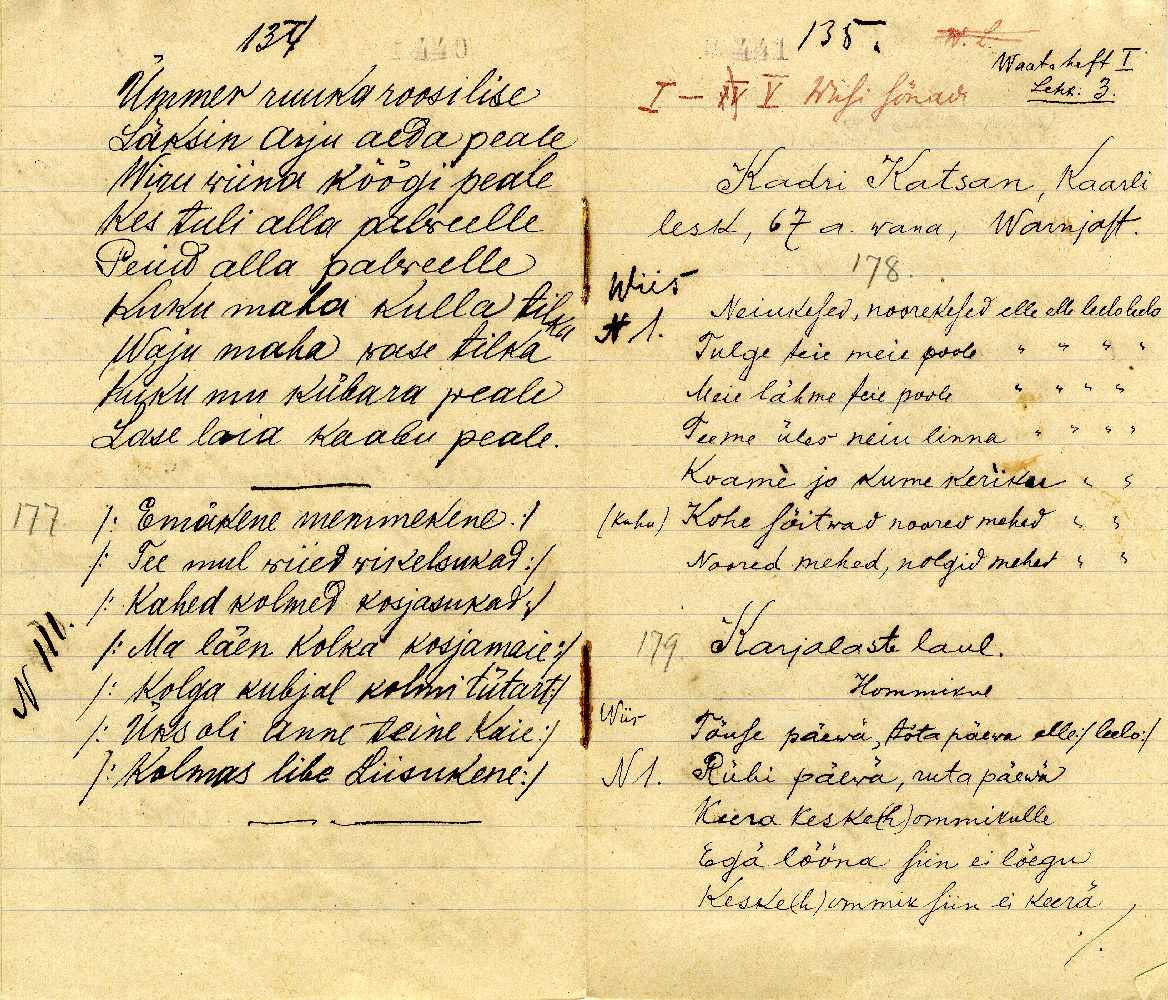 134
440
Ümmer ruuka roosilise
Läksin Arju aeda peale
Wiru wiina köögi peale
Kes tuli alla palweelle
Peiud alla palweelle
Kuku maha kulla tilka
Waju maha wase tilka
Kuku mu kübara peale
Lase laia kaabu peale.
177
/: Emäkene memmekene :/
/: Tee mul wiied wikelsukad :/
/: Kahed kolmed kosjasukad :/
N III.
/: Ma läen Kolka kosjamaie :/
/: Kolga kubjal kolmi tütart :/
/: Üks oli Anne teine Kaie :/
/: Kolmas libe Liisukene :/
441
135.
W. L.
Waata heft I
Lehk: 3.
I – IV V Wiisi sõnad
Kadri Katsan, Kaarli
lesk, 67 a. wana, Warnjast.
178.
Wiis
N 1.
Neiukesed, noorekesed elle elle leelo leelo
Tulge teie meie poole " " " "
Meie lähme teie poole " " " "
Teeme üles neiu linna " " " "
Koame jo kume keriku " "
(kuhu) Kohe sõitwad noored mehed " "
Noored mehed, nolgid mehed " "
179. Karjalaste laul.
Hommikul
Wiis
N 1.
Tõuse päewä, tõta päewa elle :/ leelo :/
Rühi päewä, ruta päewä
Keera keske(h)ommikulle
Egä lööna siin ei lõegu
Keske(h)ommik siin ei keerä
./.